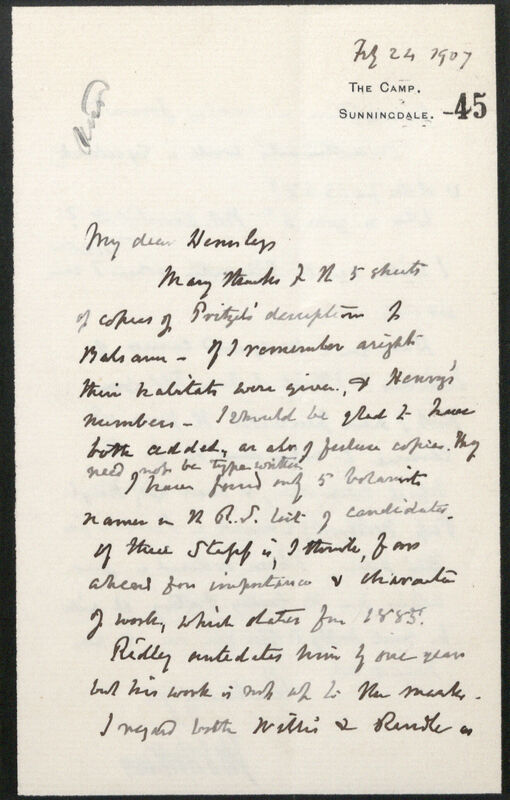 Feb 24 1907
THE CAMP.
SUNNINGDALE. -45
My dear Hemsley
Many thanks for the 5 sheets
of copies of Pritzel's description of
Balsams - If I remember aright
their habitats were given, & Henry's
numbers - I should be glad to have
both added, as also of future copies. They
need not be typewritten
I have found only 5 botanists
names in the R.S. list of candidates.
Of these Stapf is, I think, far
ahead for importance & character
of work, which dates from 1885.
Ridley antedates him by one year
but his work is not up to the mark.
I regard both Willis & Rendle as